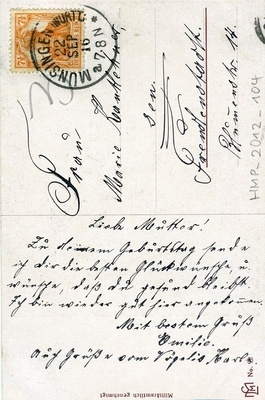 MÜNSINGEN WÜRTT.
22 SEP. 16
7-8 N
7½ 7½
Frau
Marie
sen.
Freudenstadt.
Blumenstr. 14
HMP-2012-104
Liebe Mutter!
Zu deinem Geburtstag sende
ich dir die besten Glückwünsche, u.
wünsche, daß du gesund bleibst.
Ich bin wieder gut hier angekommen.
Mit bestem Gruß
Emilie.
Auch Grüße vom Karle.
Militäramtlich genehmigt